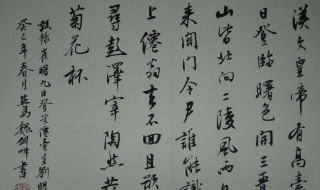 漢文皇帝有高臺
日登臨曙色開三晉
山皆北向二陵風雨
來關門令尹誰能識
上僊翁去不回且欲
尋彭澤宰陶然共
菊花杯
敬録崔曙九日登望僊臺呈劉明
癸巳年春月 魏劍峰書